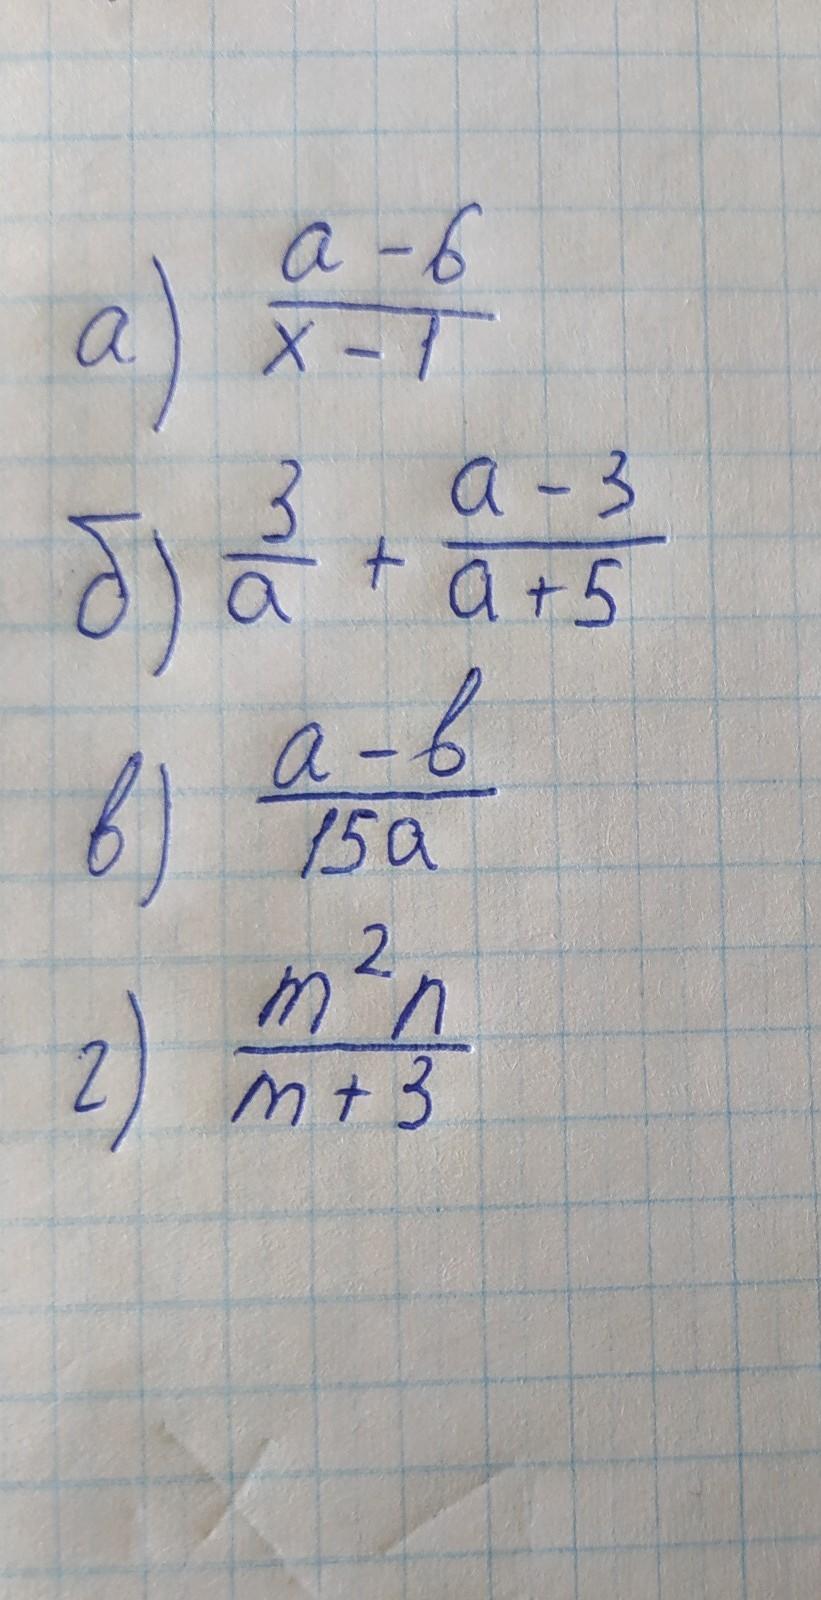 а) (a - 6)/(x - 1)
б) 3/a + (a - 3)/(a + 5)
в) (a - b)/(15a)
г) (m²n)/(m + 3)